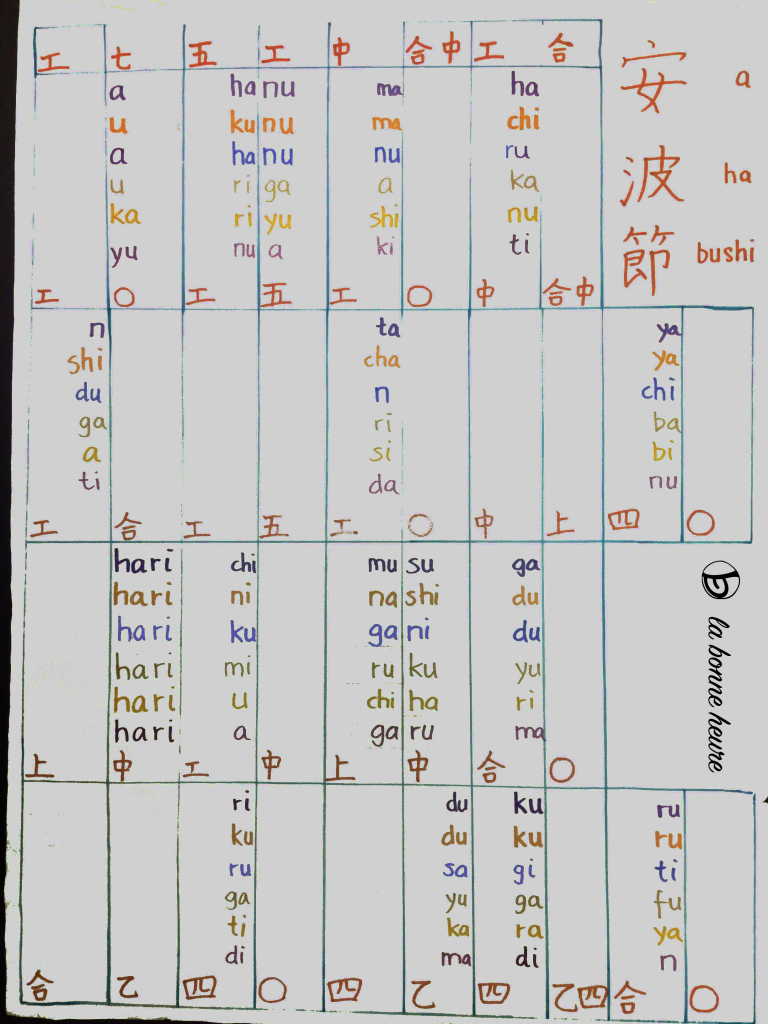 安 a
波 ha
節 bushi
工 七 五 工 中 合中 工 合
a ha nu ma ha
u ku nu ma chi
a ha nu nu ru
u ri ga a ka
ka ri yu shi nu
yu nu a ki ti
工 〇 工 五 工 〇 中 合中
n ta ya
shi cha ya
du n chi
ga ri ba
a si bi
ti da nu
工 合 工 五 工 〇 中 上 四 〇
hari chi mu su ga
hari ni na shi du
hari ku ga ni du
hari mi ru ku yu
hari u chi ha ri
hari a ga ru ma
上 中 工 中 上 中 合 〇
b la bonne heure
ri du ku ru
ku du ku ru
ru sa gi ti
ga yu ga fu
ti ka ra ya
di ma di n
合 乙 四 〇 四 乙 四 乙四 合 〇